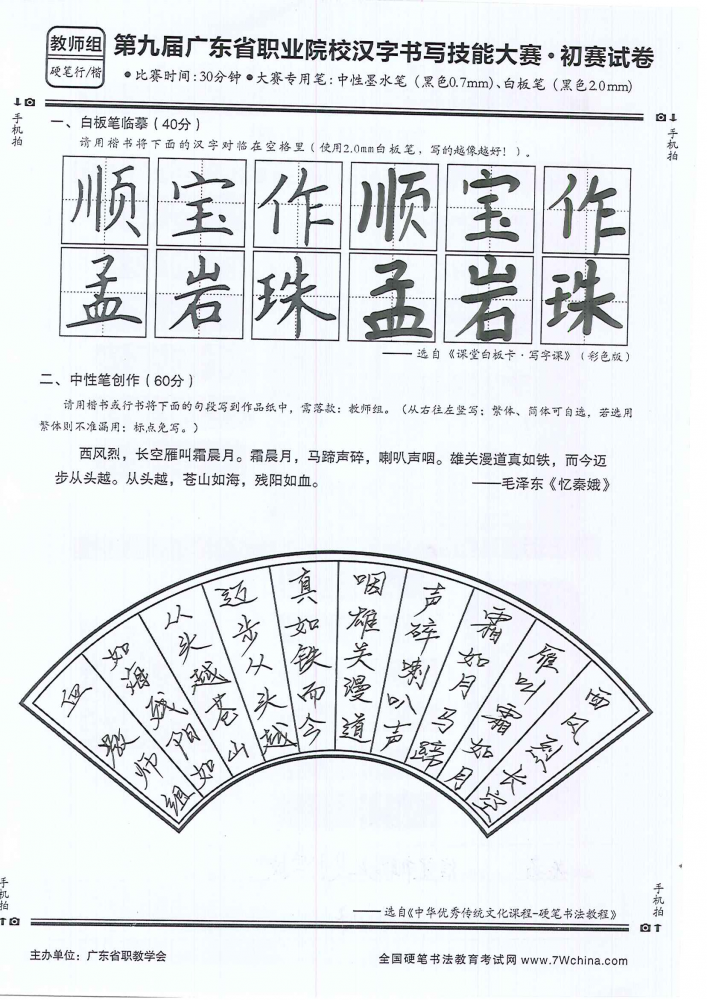 教师组
硬笔行/楷
第九届广东省职业院校汉字书写技能大赛·初赛试卷
●比赛时间:30分钟●大赛专用笔:中性墨水笔(黑色0.7mm)、白板笔(黑色2.0mm)
手机拍
手机拍
一、白板笔临摹(40分)
请用楷书将下面的汉字对临在空格里(使用2.0mm白板笔,写的越像越好!)。
顺宝作顺宝作
孟岩珠孟岩珠
——选自《课堂白板卡·写字课》(彩色版)
二、中性笔创作(60分)
请用楷书或行书将下面的句段写到作品纸中,需落款:教师组。(从右往左竖写;繁体、简体可自选,若选用
繁体则不准漏用;标点免写。)
西风烈,长空雁叫霜晨月。霜晨月,马蹄声碎,喇叭声咽。雄关漫道真如铁,而今迈
步从头越。从头越,苍山如海,残阳如血。
——毛泽东《忆秦娥》
西风烈长空
雁叫霜如月
霜如月马蹄
声碎喇叭声
咽雄关漫道
真如铁而今
迈步从头越
从头越苍山
如海残阳如
血教师组
——选自《中华优秀传统文化课程-硬笔书法教程》
手机拍
手机拍
主办单位:广东省职教学会
全国硬笔书法教育考试网 www.7Wchina.com